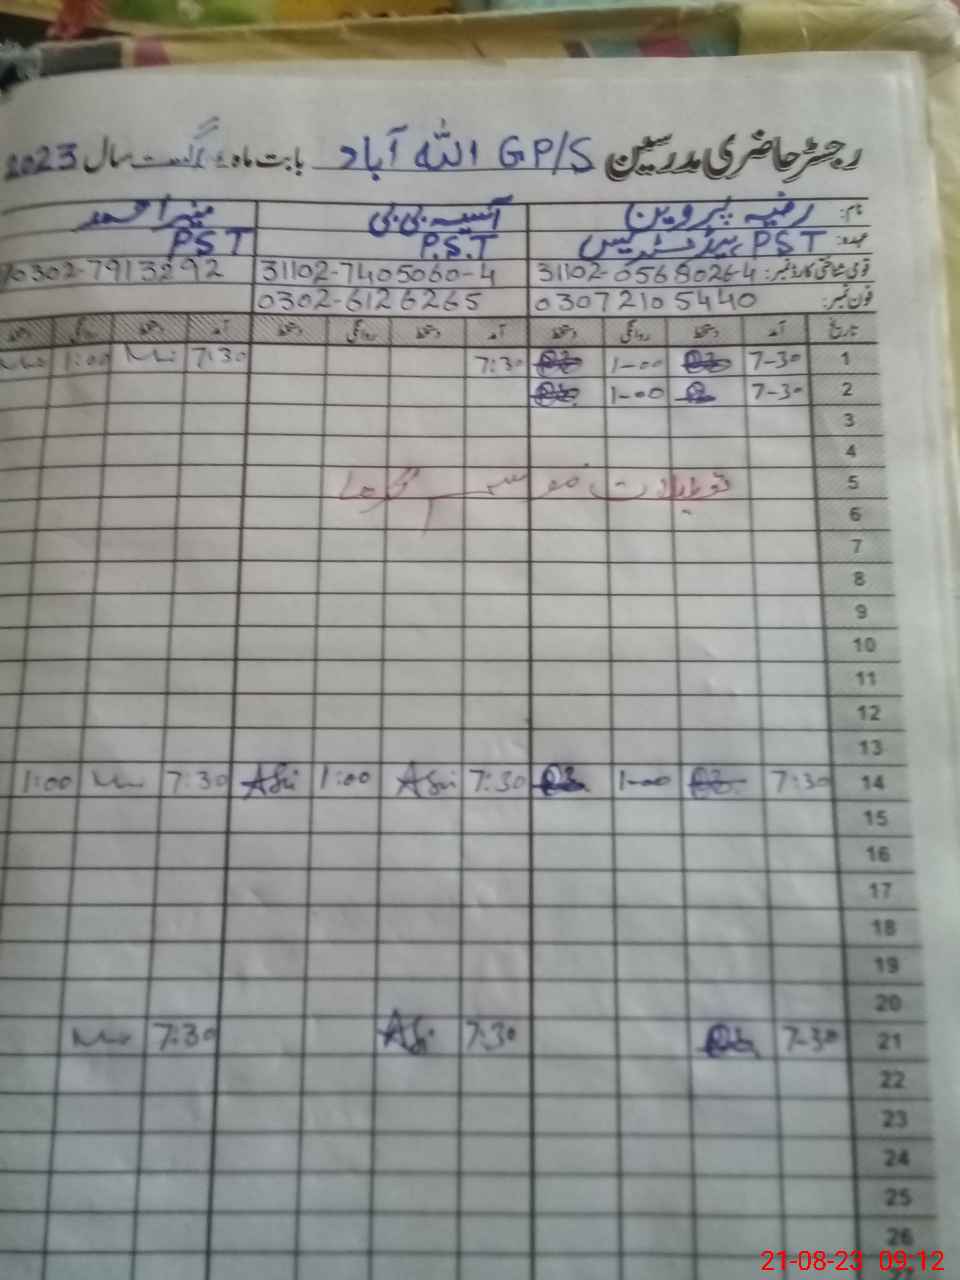 رجسٹر حاضری مدرسین GP/S اللہ آباد بابت ماہ اگست سال 2023
نام: رضیہ پروین آسیہ بی بی منیر احمد
عہدہ: PST ہیڈ مسٹریس P.S.T PST
قومی شناختی کارڈ نمبر: 31102-0568026-4 31102-7405060-4 0302-7913292
فون نمبر: 03072105440 0302-6126265
تاریخ آمد دستخط روانگی دستخط آمد دستخط روانگی دستخط آمد دستخط روانگی دستخط
1 7-30 1-00 7:30 7:30 1:00
2 7-30 1-00
3
4
5 تعطیلات موسم گرما
6
7
8
9
10
11
12
13
14 7:30 1-00 7:30 Asi 1:00 Asi 7:30 1:00
15
16
17
18
19
20
21 7-30 7:30 Asi 7:30
22
23
24
25
26
21-08-23 09:12